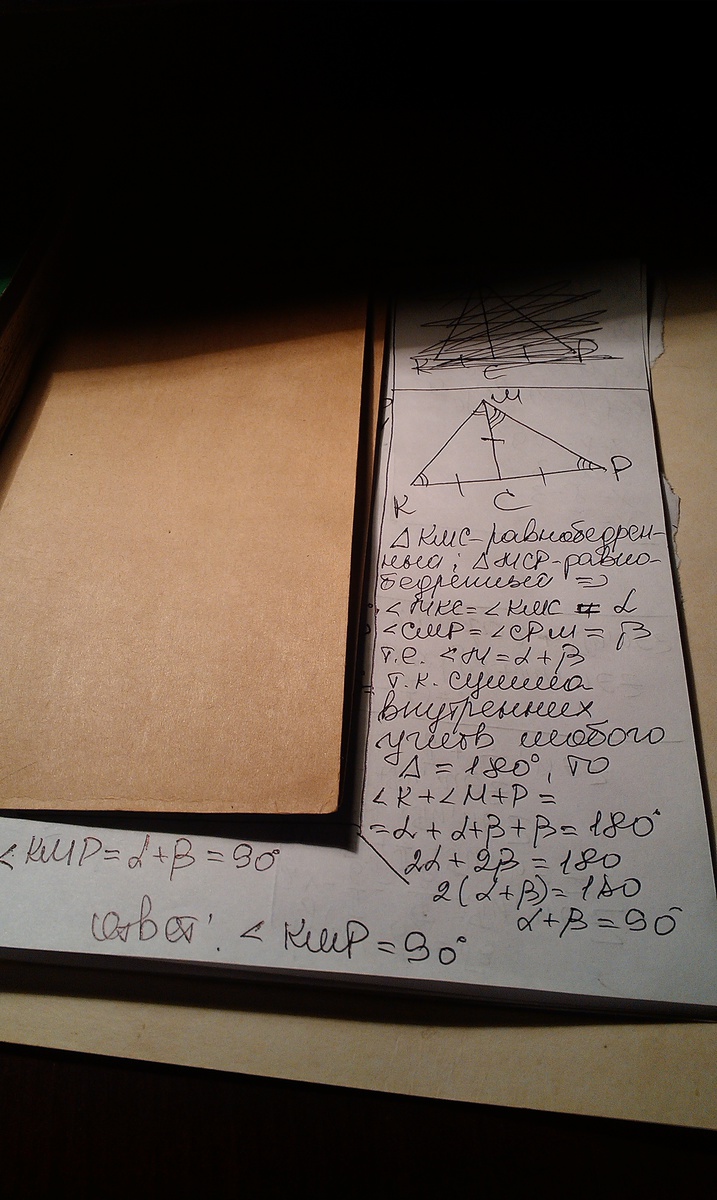 K C P
M
K C P
Δ KMC - равнобедрен-
ный; Δ MCP - равно-
бедренный =>
∠MKC = ∠KMC = α
∠CMP = ∠CPM = β
т.е. ∠M = α + β
т.к. сумма
внутренних
углов любого
Δ = 180°, то
∠K + ∠M + P =
= α + α + β + β = 180°
2α + 2β = 180
2(α + β) = 180
α + β = 90°
∠KMP = α + β = 90°
Ответ: ∠KMP = 90°